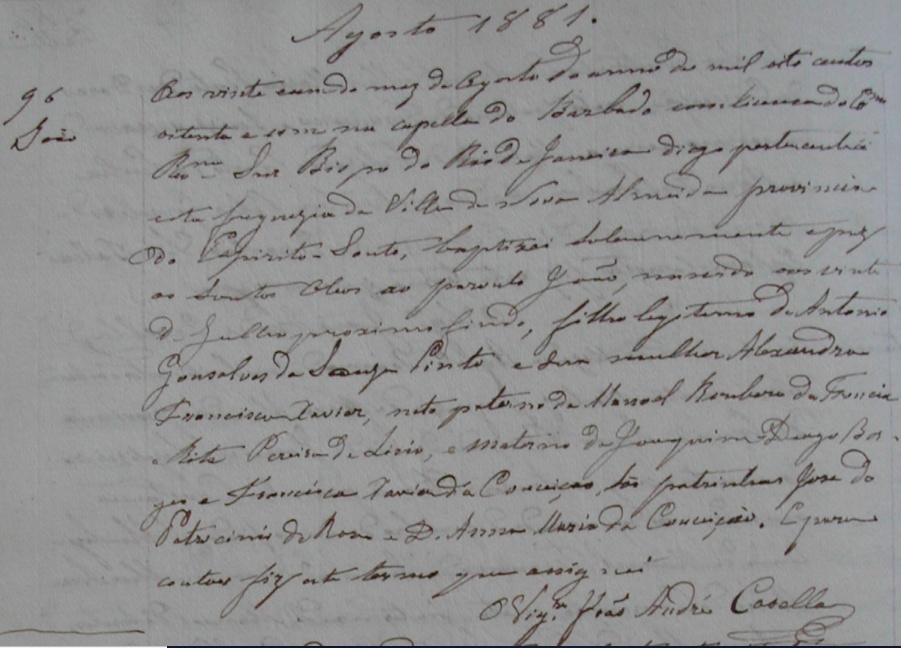 Agosto 1881.
96
João
Aos vinte e um do mez de Agosto do anno de mil oito centos
oitenta e um na capella do Barbado com licença do
Rmo Snr Bispo do Rio de Janeiro digo pertencente á
esta freguezia da Villa de Nova Almeida provincia
do Espirito-Santo, baptizei solemnemente e puz
os Santos Oleos ao parvulo João, nascido aos vinte
de Julho proximo findo, filho legitimo de Antonio
Gonsalves de Souza Pinto e sua mulher Alexandra
Francisca Xavier, neto paterno de Manoel da
e Rita Pereira de, e materno de Joaquim Diogo Bor-
ges e Francisca Xavier da Conceição, são padrinhos José do
Patrocinio de Rosa e D. Anna Maria da Conceição. E para
constar fiz este termo que assignei
O Vigro João André Casella